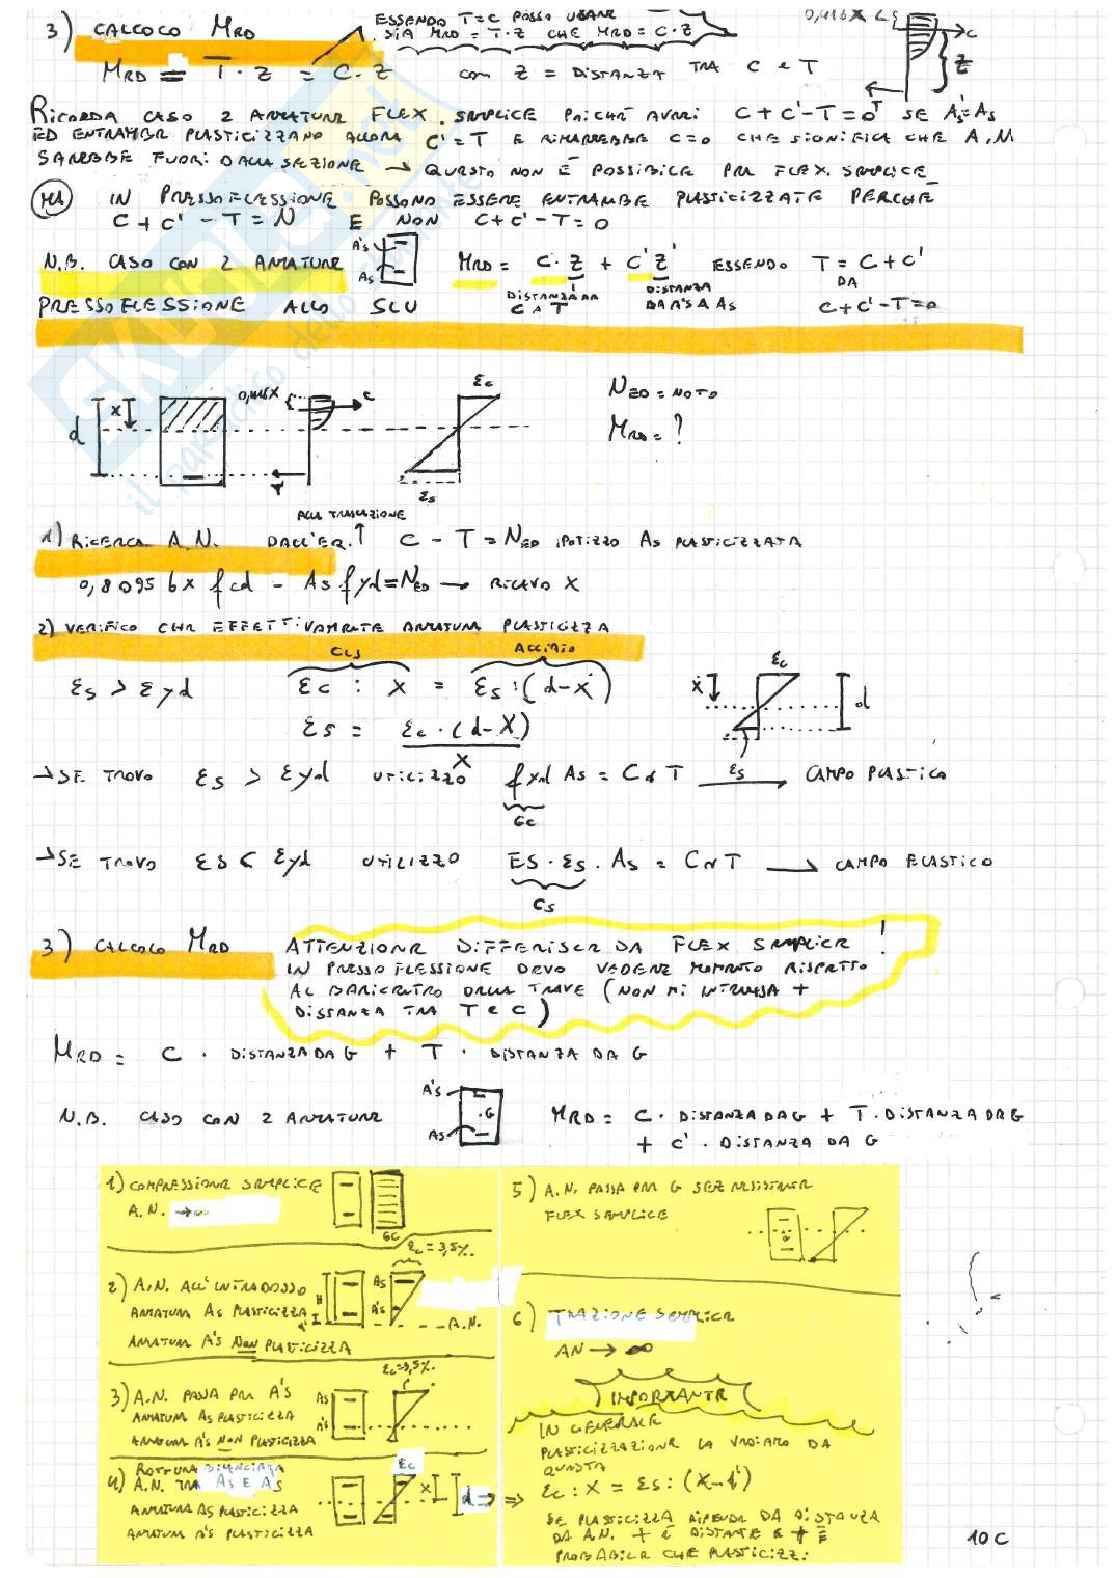 3) CALCOLO MRD
ESSENDO T=C POSSO USARE
SIA MRD = T·Z CHE MRD = C·Z
0,416X CLS
C
Z
T
MRD = T·Z = C·Z con Z = DISTANZA TRA C e T
RICORDA CASO 2 ARMATURE FLEX. SEMPLICE POICHÈ AVREI C+C'-T=0 SE A's=As
ED ENTRAMBE PLASTICIZZANO ALLORA C'=T E RIMARREBBE C=0 CHE SIGNIFICA CHE A.N
SAREBBE FUORI DALLA SEZIONE → QUESTO NON È POSSIBILE PER FLEX. SEMPLICE
MA IN PRESSOFLESSIONE POSSONO ESSERE ENTRAMBE PLASTICIZZATE PERCHÈ
C+C'-T=N E NON C+C'-T=0
N.B. CASO CON 2 ARMATURE A's As MRD = C·Z + C'Z' ESSENDO T=C+C'
DISTANZA DA C A T
DISTANZA DA A's A As
DA C+C'-T=0
PRESSOFLESSIONE ALLO SLU
d X 0,416X C T εc εs
NED = NOTO
MRD = ?
ALLA TRASLAZIONE
1) RICERCA A.N. DALL'EQ.↑ C - T = NED IPOTIZZO AS PLASTICIZZATA
0,8095 bx fcd - As·fyd = NED → RICAVO X
2) VERIFICO CHE EFFETTIVAMENTE ARMATURA PLASTICIZZA
CLS ACCIAIO
εs > εyd εc : X = εs : (d-x)
εs = εc·(d-X)
X
εc X d εs
→ SE TROVO εs > εyd UTILIZZO fyd As = C o T εs → CAMPO PLASTICO
→ SE TROVO εs < εyd UTILIZZO ES·εs·As = C o T → CAMPO ELASTICO
3) CALCOLO MRD ATTENZIONE DIFFERISCE DA FLEX SEMPLICE!
IN PRESSOFLESSIONE DEVO VEDERE MOMENTO RISPETTO
AL BARICENTRO DELLA TRAVE (NON MI INTERESSA +
DISTANZA TRA T e C)
MRD = C · DISTANZA DA G + T · DISTANZA DA G
N.B. CASO CON 2 ARMATURE A's G As MRD = C · DISTANZA DA G + T · DISTANZA DA G
+ C' · DISTANZA DA G
1) COMPRESSIONE SEMPLICE
A.N. → ∞
εc = 3,5‰
2) A.N. ALL'INTRADOSSO
ARMATURA As PLASTICIZZA
ARMATURA A's NON PLASTICIZZA
H As A's A.N.
εc=3,5‰
3) A.N. PASSA PER A's
ARMATURA As PLASTICIZZA
ARMATURA A's NON PLASTICIZZA
As A's
ROTTURA BILANCIATA
4) A.N. TRA As E A's
ARMATURA As PLASTICIZZA
ARMATURA A's PLASTICIZZA
εc X d ⇒
5) A.N. PASSA PER G SEZ RESISTENTE
FLEX SEMPLICE
G
6) TRAZIONE SEMPLICE
AN → ∞
IMPORTANTE
IN GENERALE
PLASTICIZZAZIONE LA VEDIAMO DA
QUESTA
εc : X = εs : (X-d')
SE PLASTICIZZA DIPENDE DA DISTANZA
DA A.N. + È DISTANTE E + È
PROBABILE CHE PLASTICIZZI
10 C